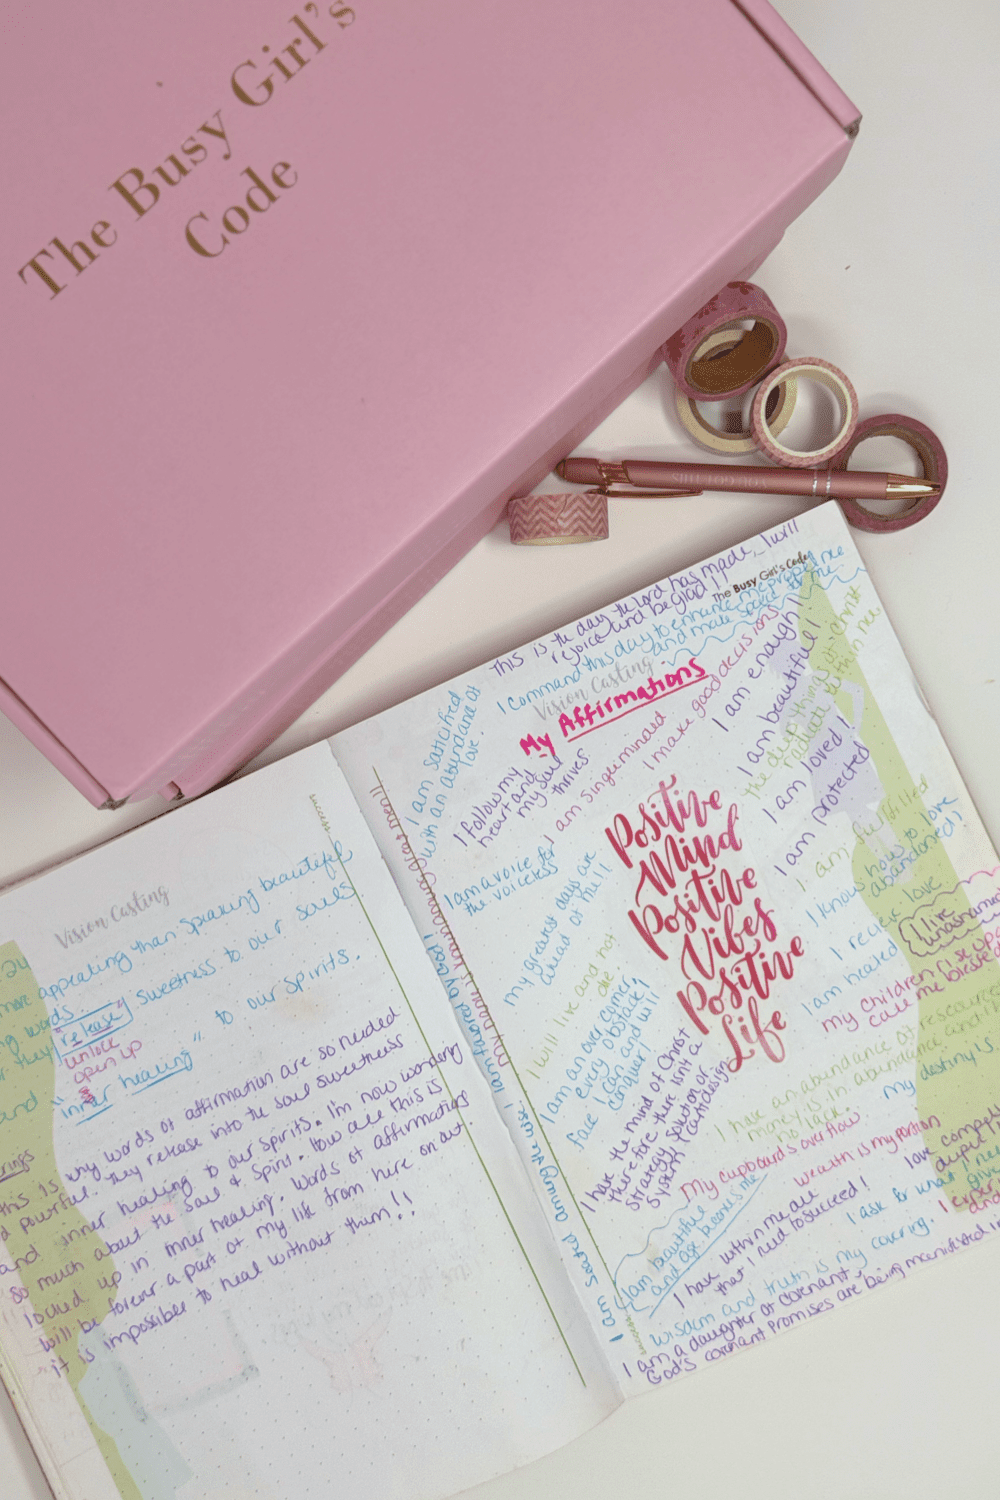 The Busy Girl's
Code
YOU GOT THIS
Vision Casting
success
more appealing than speaking beautiful
words.
they "release" sweetness to our souls
unlock
open up
and "inner healing" to our spirits.
this is why words of affirmation are so needed
powerful. They release into the soul sweetness
and inner healing to our spirits. I'm now wondering
so much about the Soul & Spirit. How all this is
locked up in inner healing. Words of affirmation
will be forever a part of my life from here on out.
it is impossible to heal without them!!
This is the day the Lord has made, I will
rejoice and be glad!!
The Busy Girl's Code
I command this day to enhance me, me
and make
Vision Casting
My Affirmations
I am saticfied
with an abundance of
love.
I follow my
heart and
my soul
thrives
I am singleminded
I make good decisions
I am enough!!
I am beautiful!
the deep things of Christ
radiate within me
I am loved!
I am protected
I am fulfilled
I know how to love
abandoned!
I am a voice for
the voiceless
my greatest days are
ahead of me!!
I will live and not
die
I am an overcomer
every obstacle I
face I can and will
conquer!
I have the mind of Christ
therefore there isn't a
strategy, solution or
system I can't design
Positive
Mind
Positive
Vibes
Positive
Life
I love
I am healed
I like
unashamed
my children rise up
call me blessed
I have an abundance of resources
money is in abundance and
no lack.
my destiny's
My cupboards overflow
wealth is my portion
love
I am beautiful
and age becomes me
I have within me all
that I need to succeed!
I ask for what I need
wisdom and truth is my covering.
I am a daughter of covenant,
God's covenant promises are being manifested in
my name is known among great men!!
I am seated among the wise! I am favored by God!
success